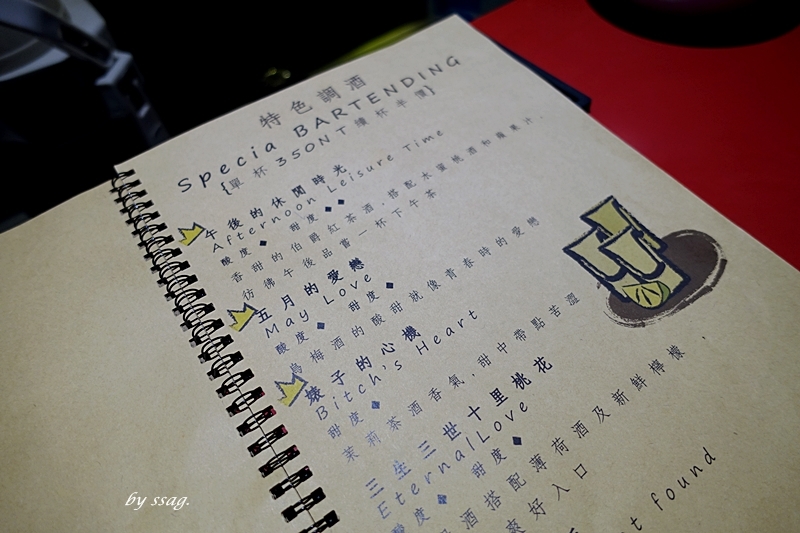 特色調酒
Specia BARTENDING
{單杯350NT 續杯半價}
午後的休閒時光
Afternoon Leisure Time
酸度◆ 甜度◆◆
香甜的伯爵紅茶酒.搭配水蜜桃酒和蘋果汁.
仿佛午後品嘗一杯下午茶
五月的愛戀
May Love
酸度◆ 甜度◆
烏梅酒的酸甜就像青春時的愛戀
婊子的心機
Bitch's Heart
甜度◆ ◆
茉莉茶酒香氣.甜中帶點苦澀
三生三世十里桃花
EternalLove
酸度◆ 甜度◆
酒搭配薄荷酒及新鮮檸檬.
爽好入口
t found
by ssag.